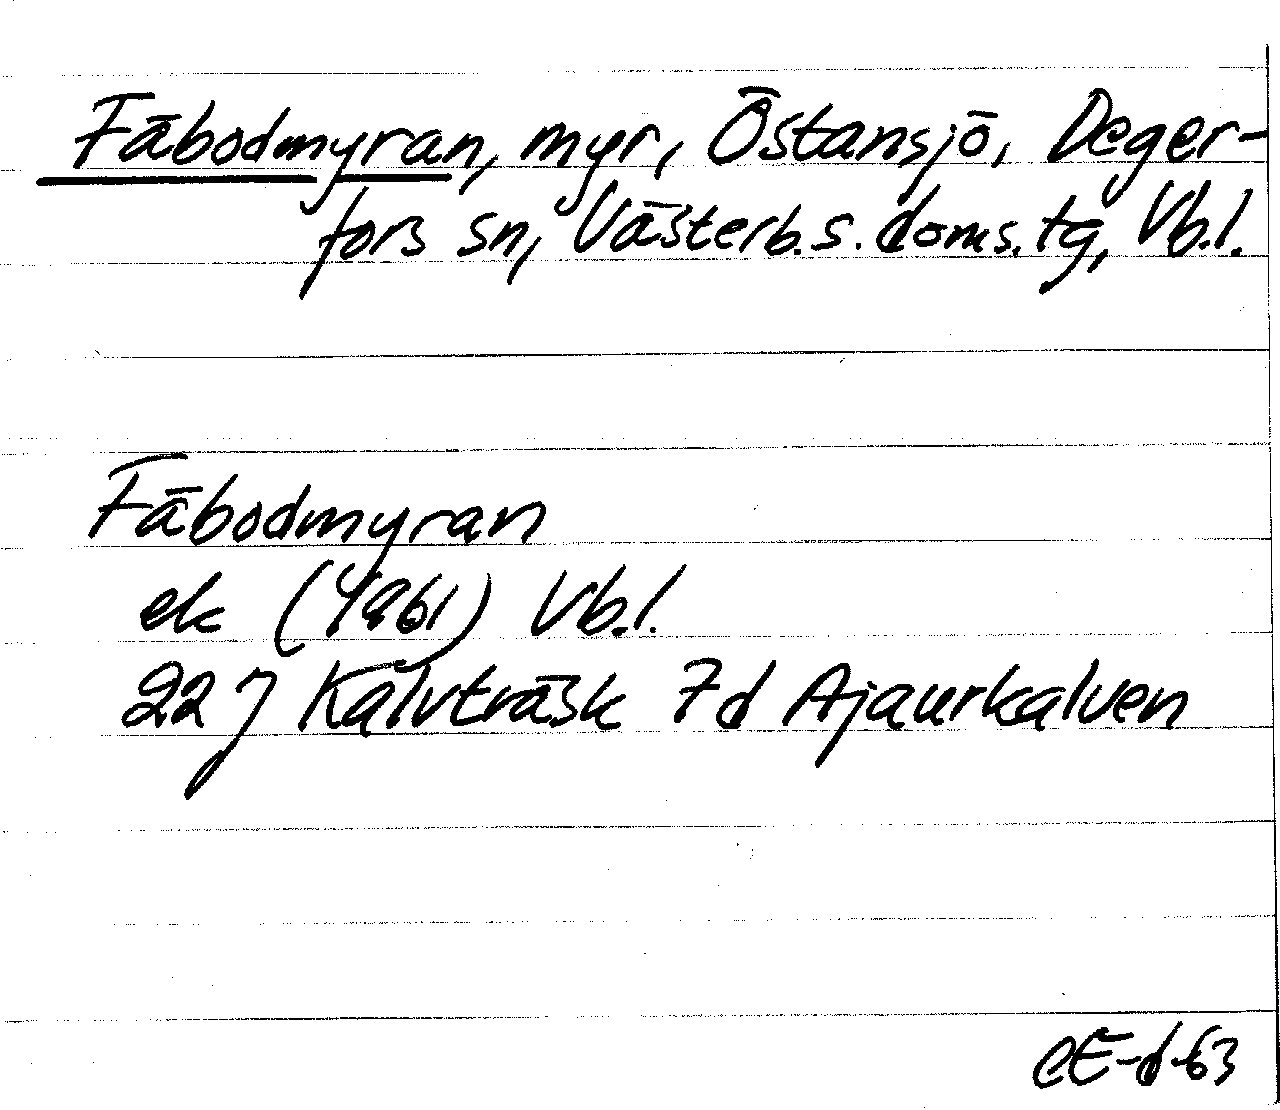 Fäbodmyran, myr, Östansjö, Deger-
fors sn, Västerb. s. doms. tg, Vb.l.
Fäbodmyran
ek (1961) Vb.l.
22 J Kalvträsk 7d Ajaurkalven
CE-d-63